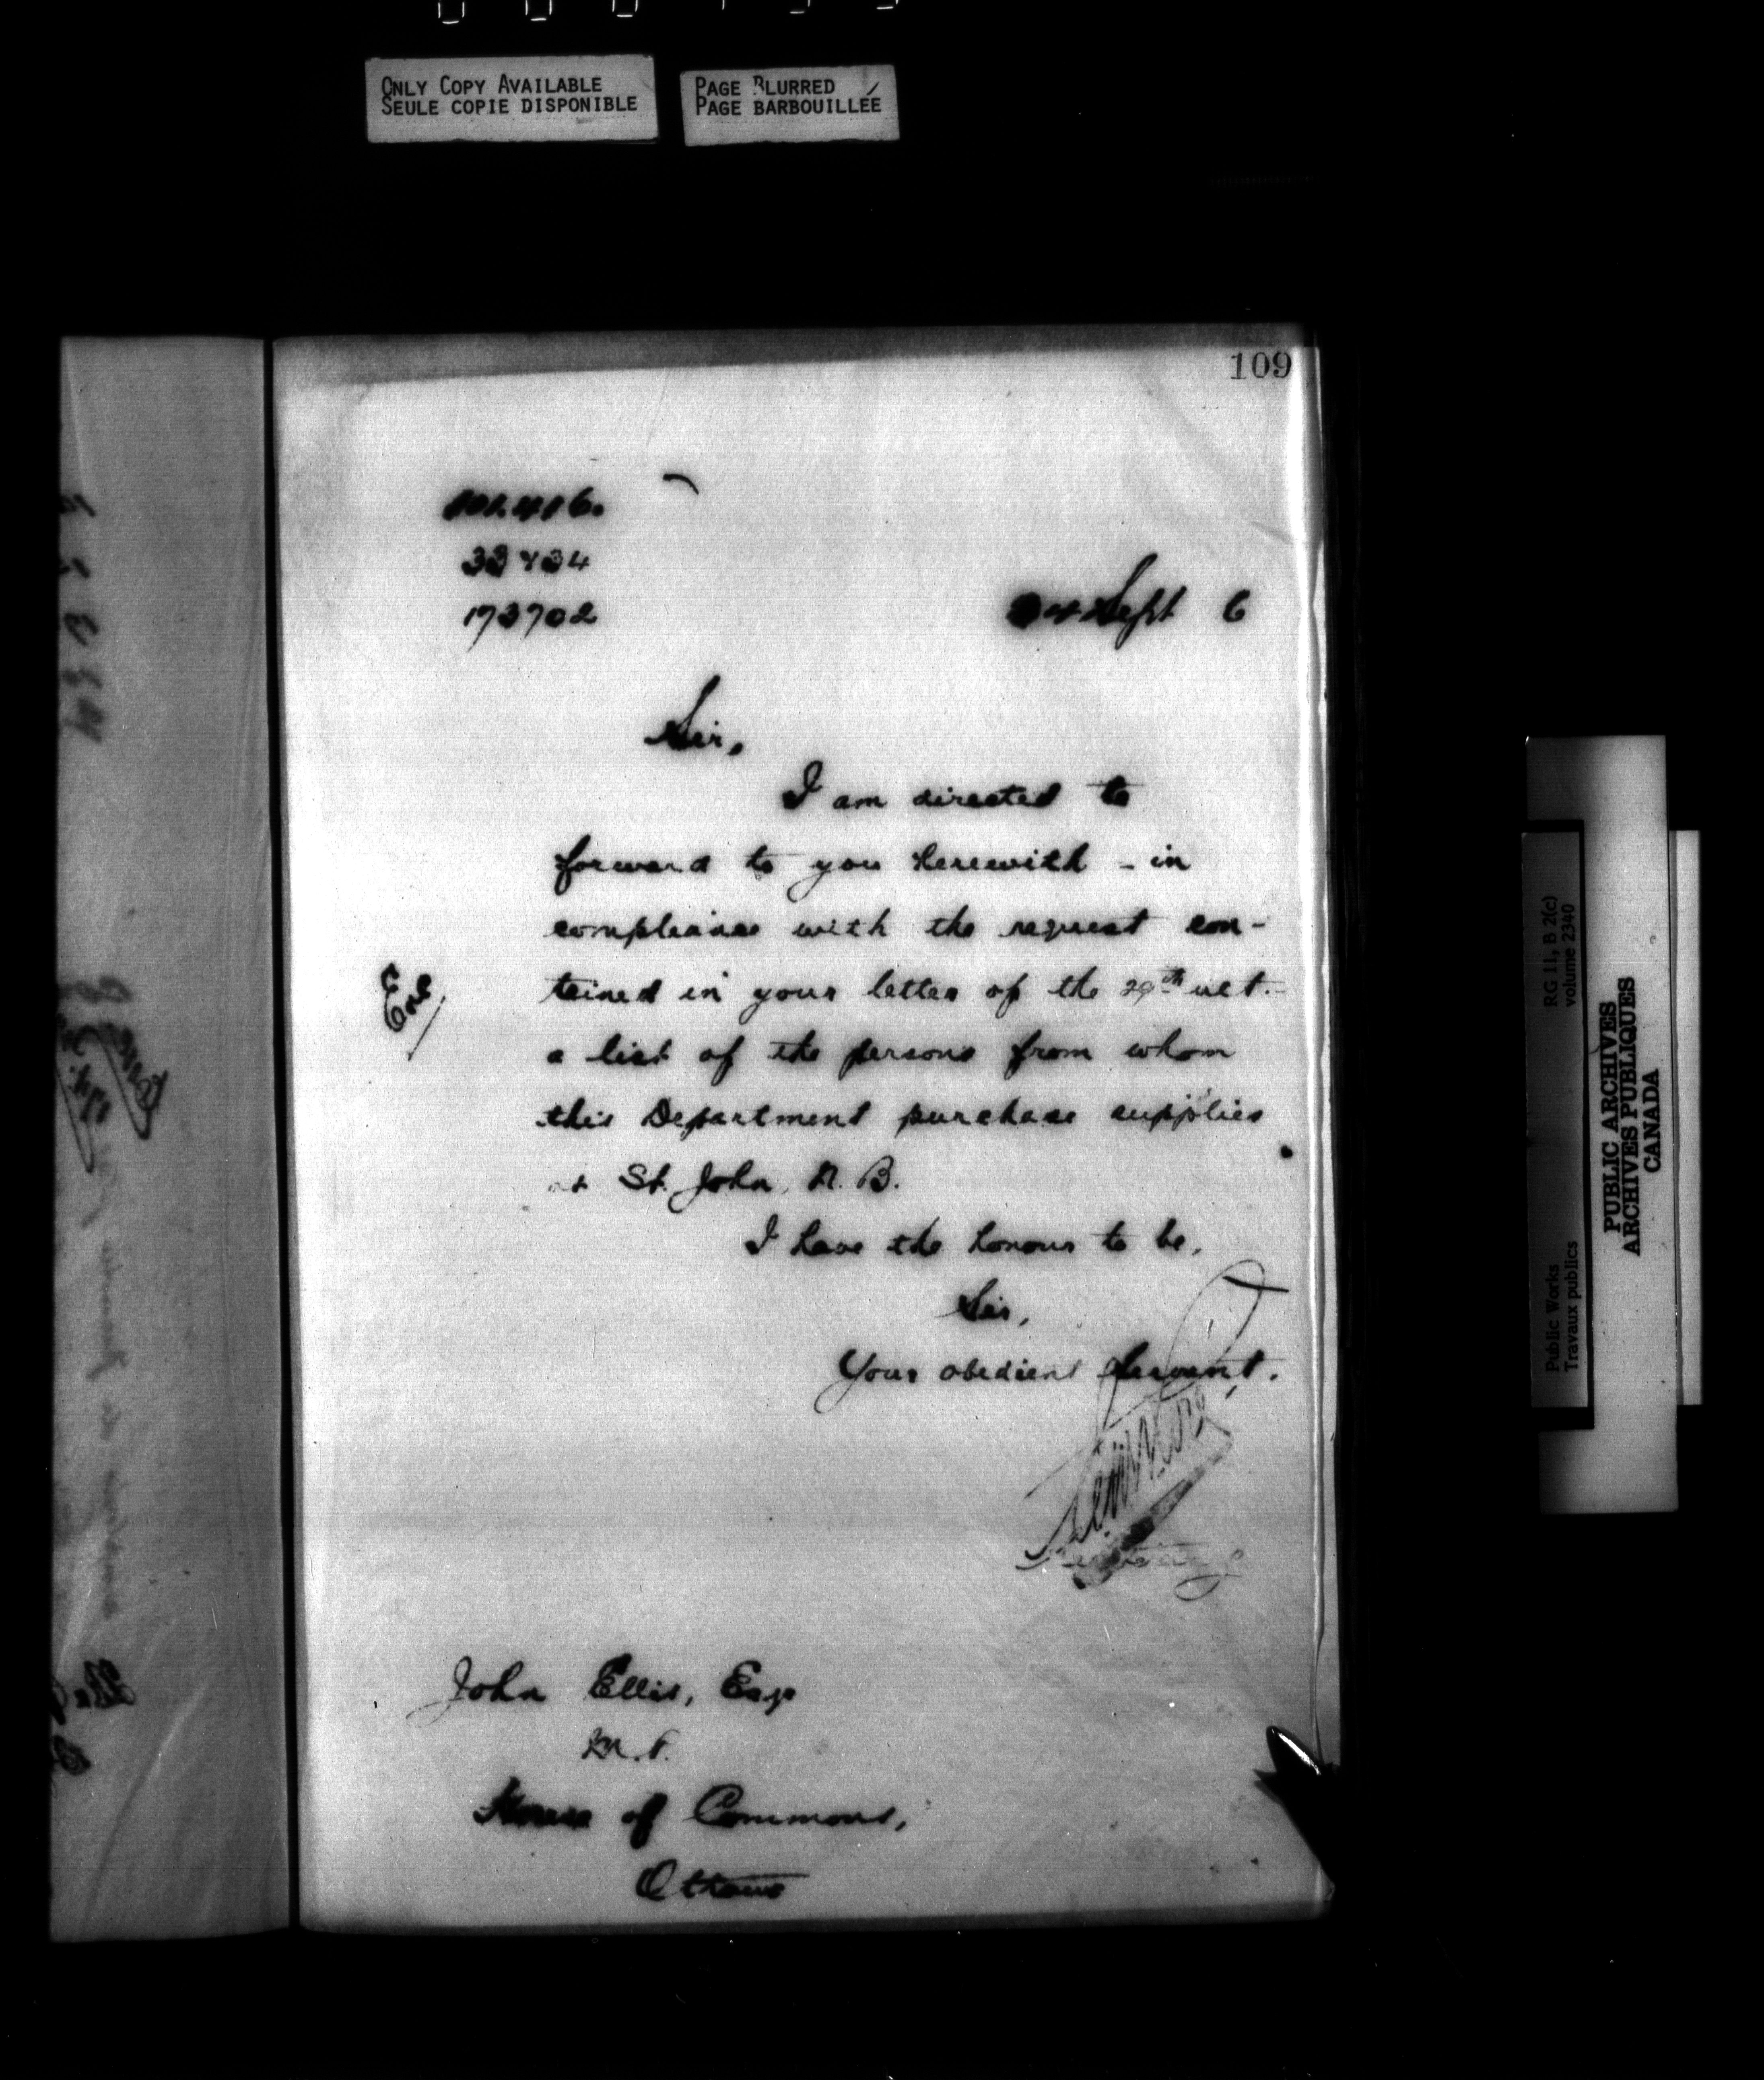 ONLY COPY AVAILABLE
SEULE COPIE DISPONIBLE
PAGE BLURRED
PAGE BARBOUILLÉE
109
101.416.
173702
Sept 6
Sir,
I am directed to
forward to you herewith - in
compliance with the request con-
tained in your letter of the 29th ult. -
a list of the persons from whom
this Department purchase supplies
at St. John, N. B.
I have the honour to be,
Sir,
Your obedient Servant.
Secretary
John Ellis, Esqr
M.P.
House of Commons,
Ottawa
RG 11, B 2(c)
volume 2340
Public Works
Travaux publics
PUBLIC ARCHIVES
ARCHIVES PUBLIQUES
CANADA